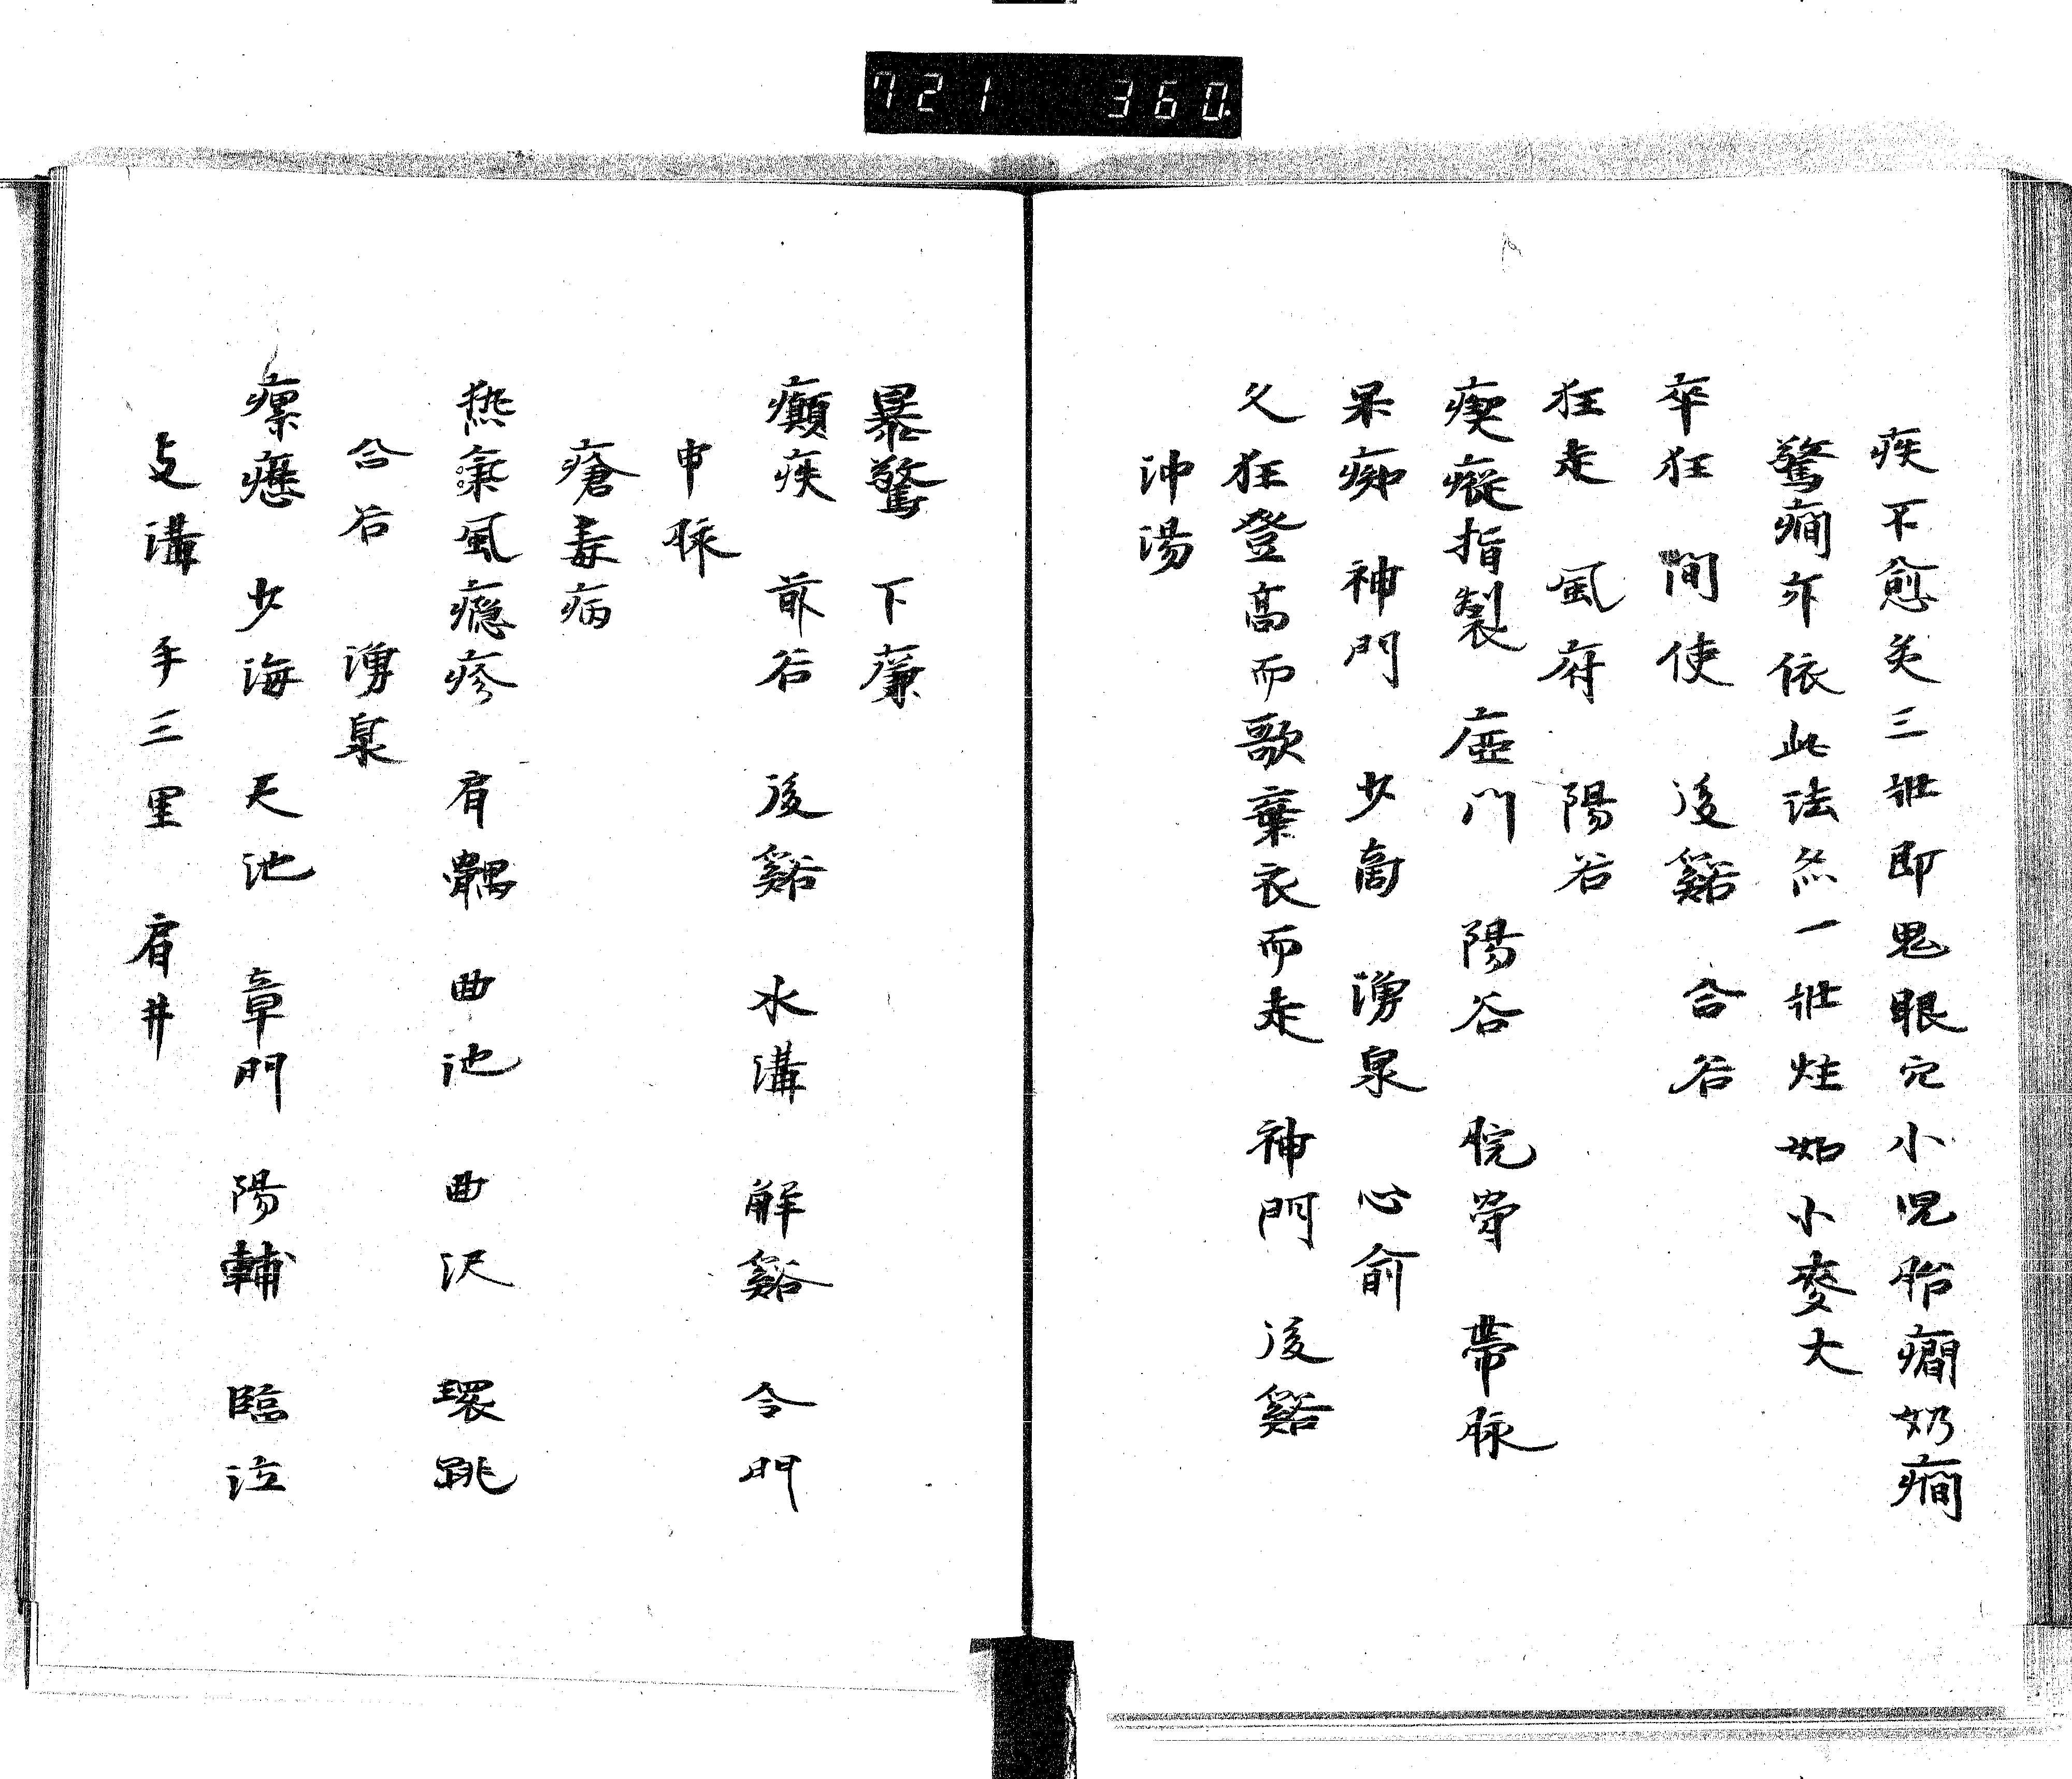 721 360
疾不愈灸三壯即鬼眼穴小児胎癎奶癇
驚癇亦依此法灸一壯炷如小麥大
卒狂 間使 後谿 合谷
狂走 風府 陽谷
瘈瘲指掣 瘂門 陽谷 腕骨 帶脉
呆痴 神門 少商 湧泉 心俞
久狂登高而歌棄衣而走 神門 後谿
沖湯
暴驚 下廉
癲疾 前谷 後谿 水溝 解谿 令門
申脉
瘡毒病
熱氣風癮疹 肩髃 曲池 曲沢 環跳
合谷 湧泉
瘰癧 少海 天池 章門 陽輔 臨泣
支溝 手三里 肩井